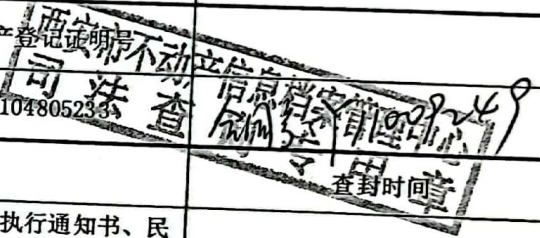 产登记证明号
西安市不动产信息档案管理中心
司法查
专用章
104805233
Y1009249
查封时间
执行通知书、民